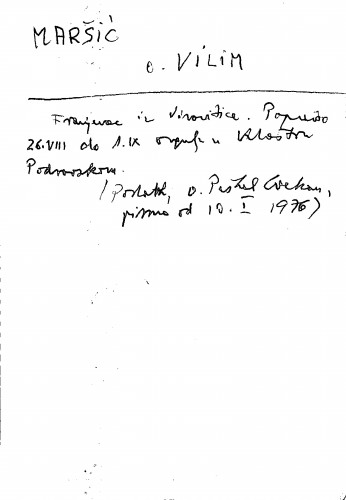 MARŠIĆ
o. VILIM
Franjevac iz Virovitice. Popravio
26.VIII do 1.IX orgulje u Kloštru
Podravskom.
(Podatak, o. Paškal Cvekan,
pismo od 10. I 1976)